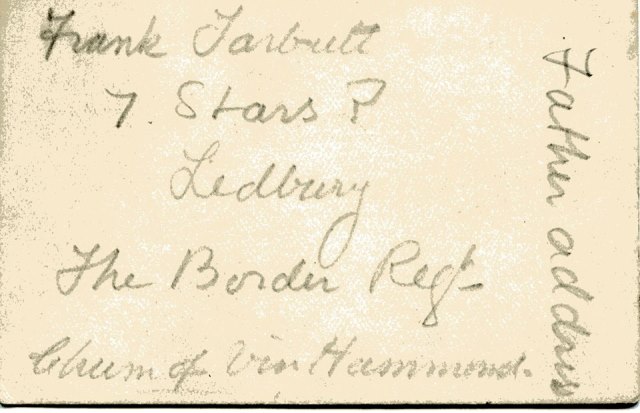 Frank Tarbutt
7 Stars ?
Ledbury
The Border Regt
Chum of Vin Hammond.
Father address